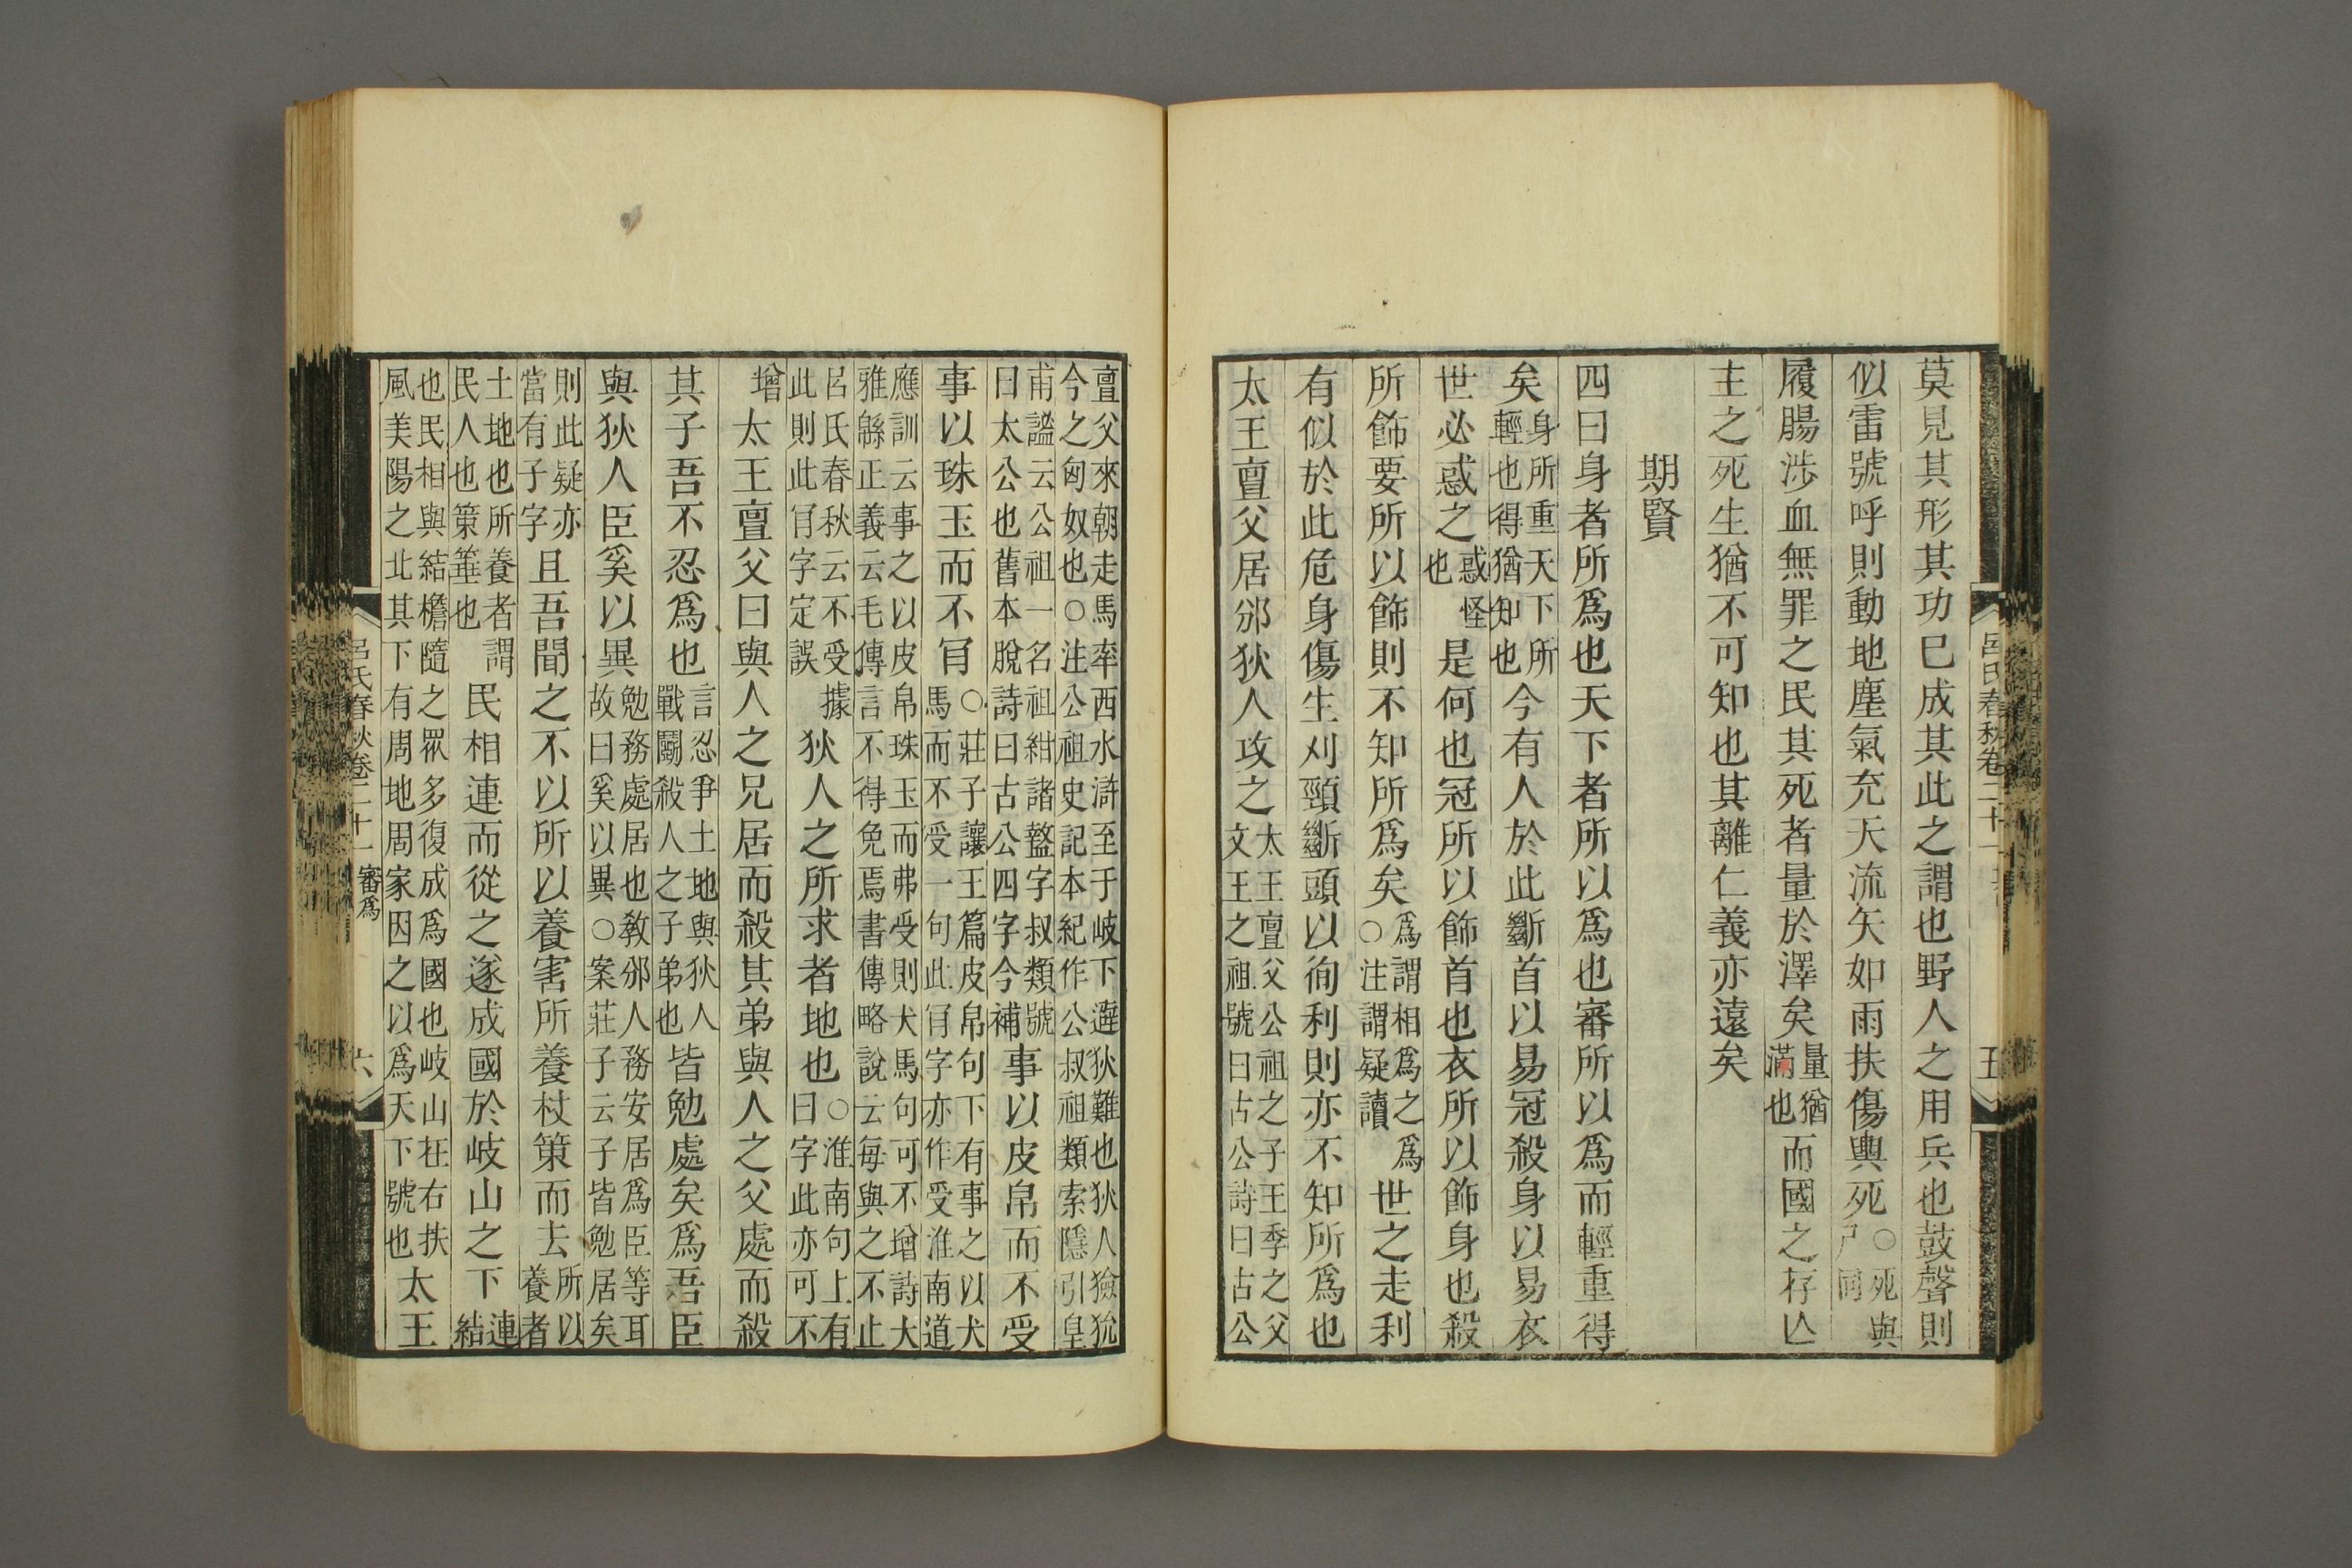 莫見其形其功巳成其此之謂也野人之用兵也鼓聲則
似雷號呼則動地塵氣充天流矢如雨扶傷輿死○死與尸同
履腸涉血無罪之民其死者量於澤矣量猶滿也而國之存亾
主之死生猶不可知也其離仁義亦遠矣
期賢
四曰身者所爲也天下者所以爲也審所以爲而輕重得
矣身所重天下所輕也得猶知也今有人於此斷首以易冠殺身以易衣
世必惑之惑怪也是何也冠所以飾首也衣所以飾身也殺
所飾要所以飾則不知所爲矣爲謂相爲之爲○注謂疑讀世之走利
有似於此危身傷生刈頸斷頭以徇利則亦不知所爲也
太王亶父居邠狄人攻之太王亶父公祖之子王季之父文王之祖號曰古公詩曰古公
呂氏春秋卷二十一
五
亶父來朝走馬率西水滸至于岐下避狄難也狄人獫狁今之匈奴也○注公祖史記本紀作公叔祖類索隱引皇
甫謐云公祖一名祖紺諸盩字叔類號曰太公也舊本脫詩曰古公四字今補事以皮帛而不受
事以珠玉而不肎○莊子讓王篇皮帛句下有事之以犬馬而不受一句此肎字亦作受淮南道
應訓云事之以皮帛珠玉而弗受則犬馬句可不增詩大雅緜正義云毛傳言不得免焉書傳略說云每與之不止
呂氏春秋云不受據此則此肎字定誤狄人之所求者地也○淮南句上有曰字此亦可不
增太王亶父曰與人之兄居而殺其弟與人之父處而殺
其子吾不忍爲也言忍爭土地與狄人戰鬭殺人之子弟也皆勉處矣爲吾臣
與狄人臣奚以異勉務處居也敎邠人務安居爲臣等耳故曰奚以異○案莊子云子皆勉居矣
則此疑亦當有子字且吾聞之不以所以養害所養杖策而去所以養者
土地也所養者謂民人也策箠也民相連而從之遂成國於岐山之下連結
也民相與結檐隨之眾多復成爲國也岐山在右扶風美陽之北其下有周地周家因之以爲天下號也太王
呂氏春秋卷二十一 審爲
六